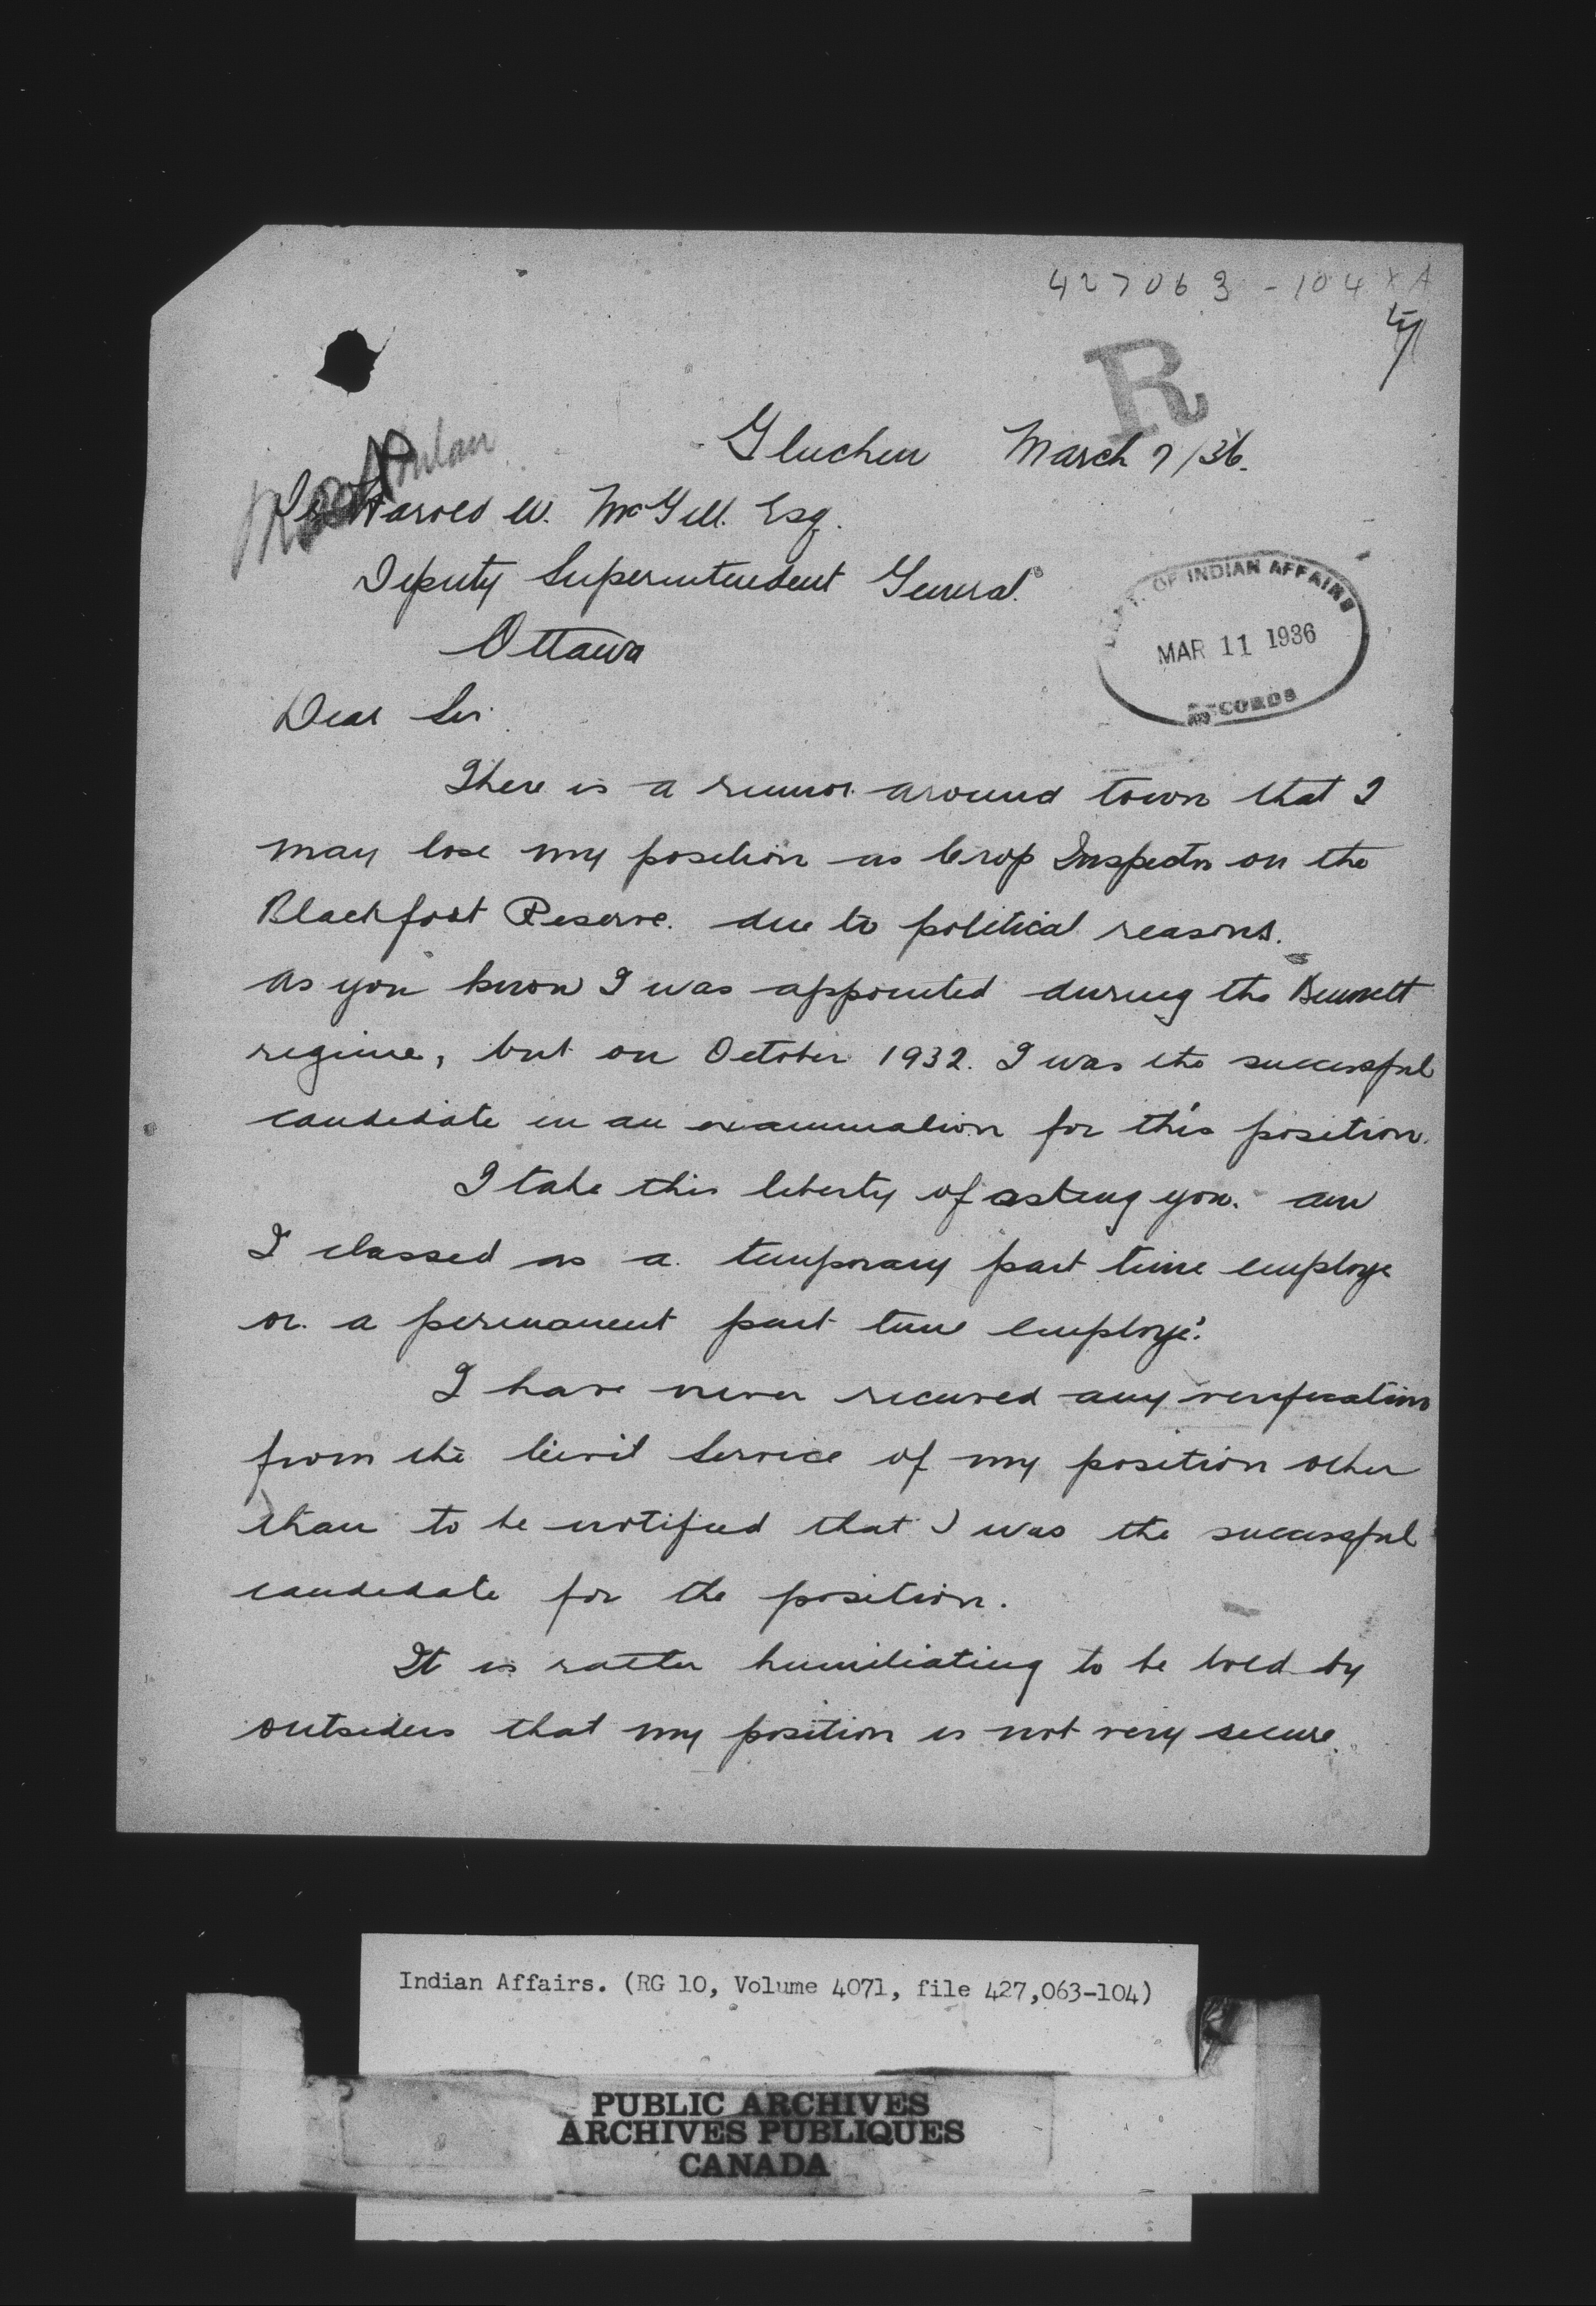 427063-104 XA
R
Gleichen March 7/36.
Dr Harold W. McGill. Esq.
Deputy Superintendent General.
Ottawa
DEPT. OF INDIAN AFFAIRS
MAR 11 1936
RECORDS
Dear Sir.
There is a rumor around town that I
may lose my position as Crop Inspector on the
Blackfoot Reserve. due to political reasons.
As you know I was appointed during the Bennett
regime, but on October 1932. I was the successful
candidate in an examination for this position.
I take this liberty of asking you. am
I classed as a temporary part time employe
or a permanent part time employe.
I have never received any verification
from the Civil Service of my position other
than to be notified that I was the successful
candidate for the position.
It is rather humiliating to be told by
outsiders that my position is not very secure.
Indian Affairs. (RG 10, Volume 4071, file 427,063-104)
PUBLIC ARCHIVES
ARCHIVES PUBLIQUES
CANADA